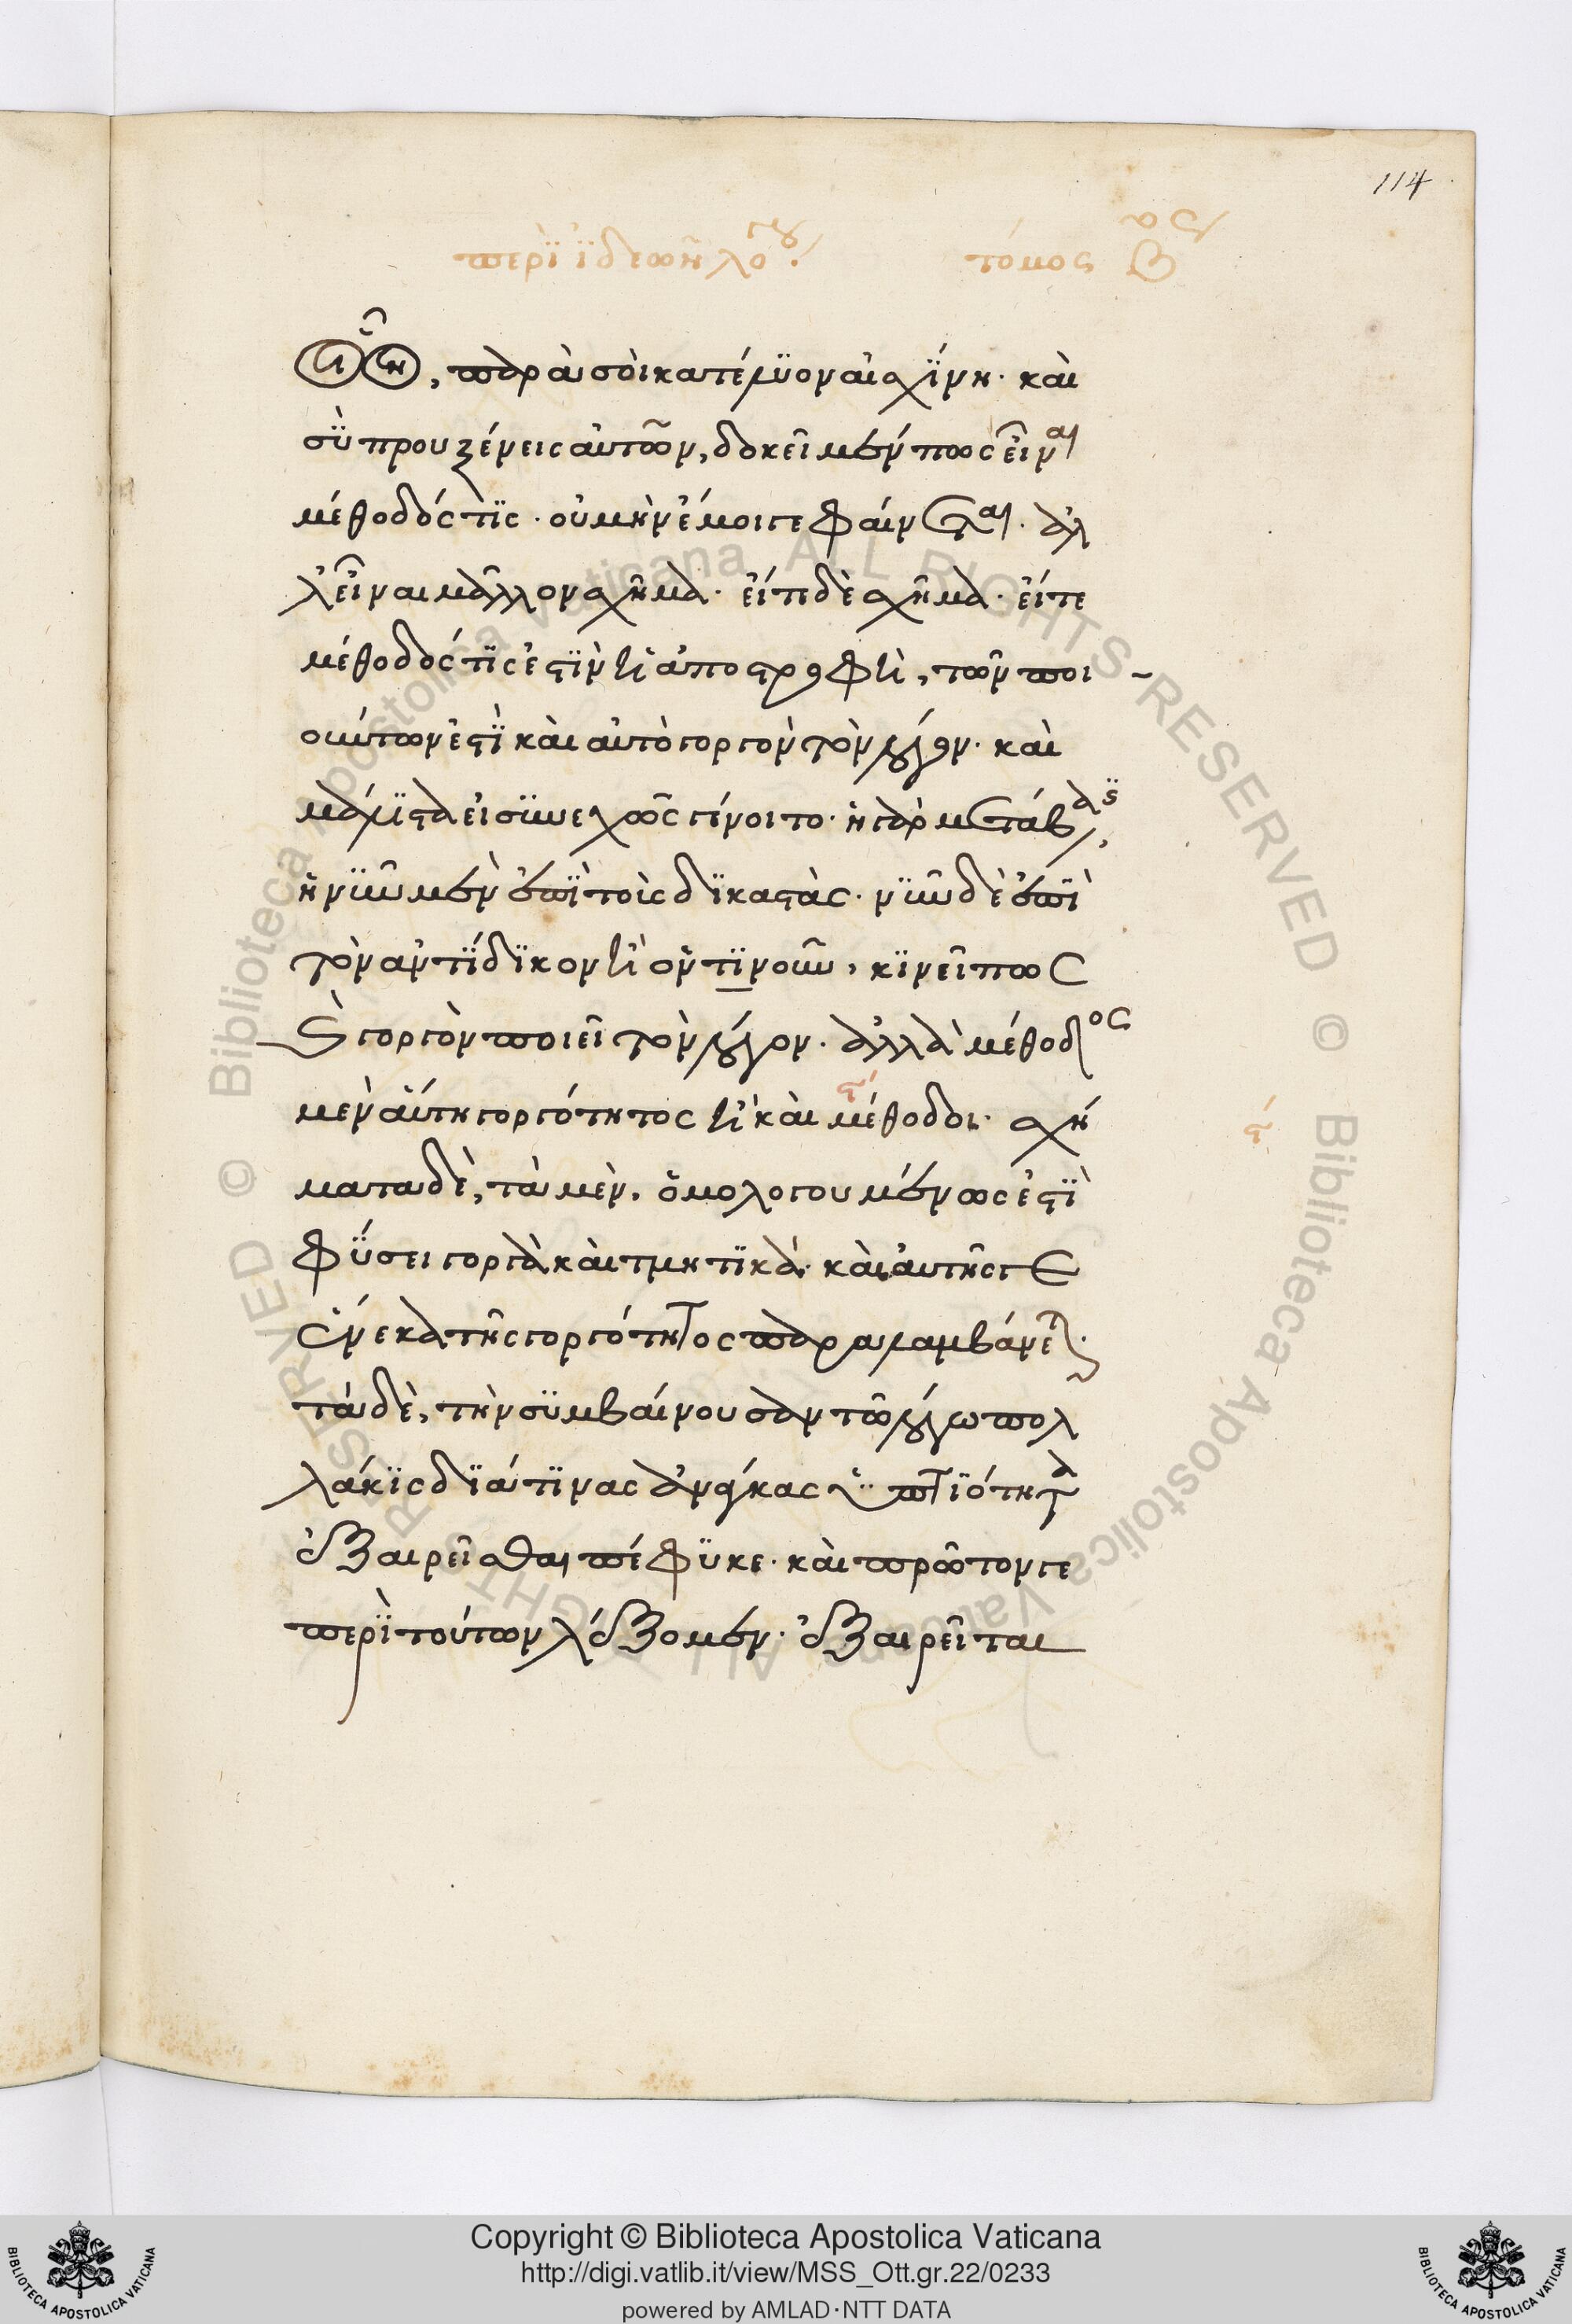 114
περὶ ἰδεῶν λόγου τόπος β
ὧν, παρὰ σοὶ κατέλυον αἰσχίνη· καὶ
σὺ προυξένεις αὐτῶν, δοκεῖ μέν πως εἶναι
μέθοδός τις· οὐ μὴν ἔμοιγε φαίνεται· ἀλ
λ' εἶναι μᾶλλον σχῆμα· εἴτε δὲ σχῆμα· εἴτε
μέθοδός τις ἐστὶν ἡ ἀποστροφὴ, τῶν ποι
ούντων ἐστὶ καὶ αὐτὸ γοργὸν τὸν λόγον· καὶ
μάλιστα εἰ συνεχῶς γίνοιτο· ἡ γὰρ μετάβασις,
ἡ νῦν μὲν ἐπὶ τοὺς δικαστὰς· νῦν δὲ ἐπὶ
τὸν ἀντίδικον ἢ ὁντινοῦν, κινεῖ πως
καὶ γοργὸν ποιεῖ τὸν λόγον· ἀλλὰ μέθοδος
μὲν αὕτη γοργότητος ἢ καὶ μέθοδοι· σχή
ματα δὲ, τὰ μὲν, ὁμολογουμένως ἐστὶ
φύσει γοργὰ καὶ τμητικά· καὶ αὐτῆς γε
ἕνεκα τῆς γοργότητος παραλαμβάνεται·
τὰ δὲ, τὴν συμβαίνουσαν τῷ λόγῳ πολ
λάκις διά τινας ἀνάγκας ὑπτιότητα
ἐξαιρεῖσθαι πέφυκε· καὶ πρῶτόν γε
περὶ τούτων λέξομεν· ἐξαιρεῖται
Copyright © Biblioteca Apostolica Vaticana
http://digi.vatlib.it/view/MSS_Ott.gr.22/0233
powered by AMLAD·NTT DATA